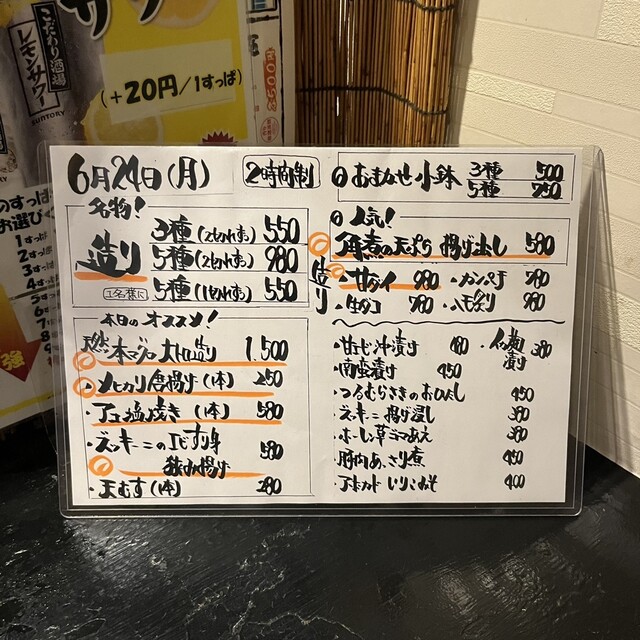 サワ
こだわり酒場
レモンサワー
SUNTORY
(+20円/1すっぱ)
のすっぱ
お選びく
1すっぱ
2すっぱ
3すっぱ
4すっぱ
強
6月24日(月)
2時間制
名物!
造り
3種(2切れずつ) 550
5種(2切れずつ) 980
1名様に
5種(1切れずつ) 550
本日のオススメ!
天然本マグロ大トロ造り 1.500
・メヒカリ唐揚げ(1本) 250
・アユ塩焼き(1本) 580
・ズッキーニのエビすり身
挟み揚げ 580
・天むす(1本) 280
おまかせ小鉢 3種 500
5種 750
人気!
角煮の天ぷら揚げ出し 580
造り
・甘ダイ 980
・カンパチ 780
・生タコ 780
・ハモ炙り 980
・甘エビ沖漬け 480
・イカ麹漬け 380
・南蛮漬け 450
・つるむらさきのおひたし 450
・ズッキーニ揚げ浸し 380
・ホーレン草ゴマあえ 380
・豚肉あっさり煮 450
・アボカドいりこみそ 400